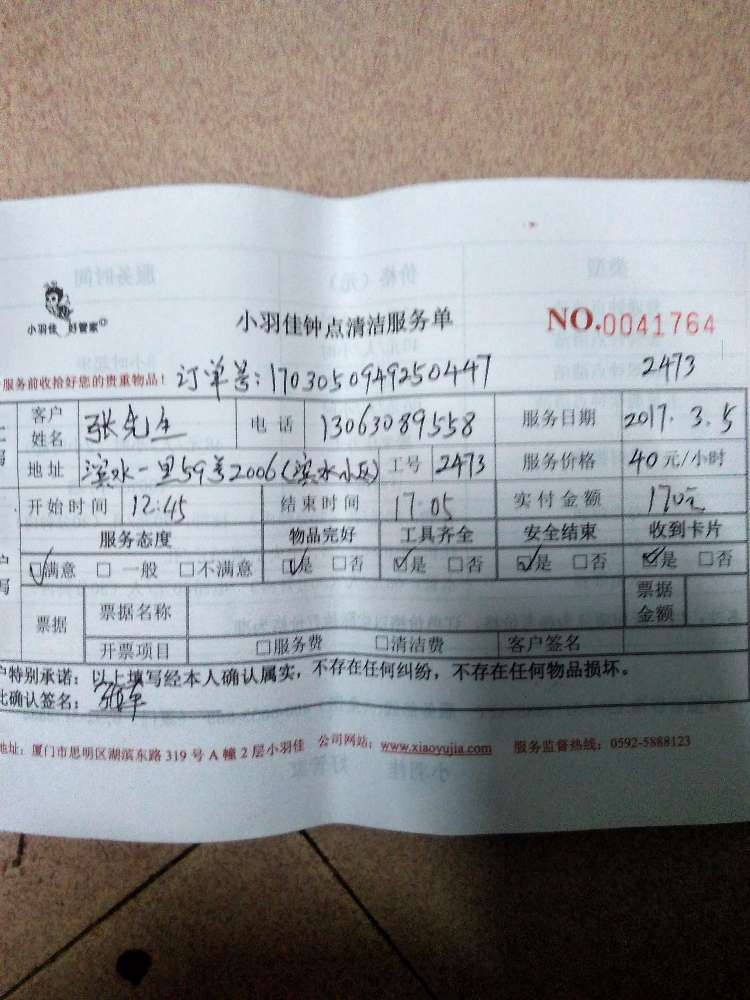 小羽佳 好管家
小羽佳钟点清洁服务单
NO.0041764
服务前收拾好您的贵重物品！ 订单号：1703050949250447 2473
客户姓名 张先生 电话 13063089558 服务日期 2017.3.5
地址 滨水一里59号2006(滨水小区) 工号 2473 服务价格 40元/小时
开始时间 12:45 结束时间 17:05 实付金额 170元
服务态度 物品完好 工具齐全 安全结束 收到卡片
☑满意 □一般 □不满意 ☑是 □否 ☑是 □否 ☑是 □否 ☑是 □否
票据 票据名称 票据金额
开票项目 □服务费 □清洁费 客户签名
户特别承诺：以上填写经本人确认属实，不存在任何纠纷，不存在任何物品损坏。
此确认签名：
地址：厦门市思明区湖滨东路319号A幢2层小羽佳 公司网站：www.xiaoyujia.com 服务监督热线：0592-5888123